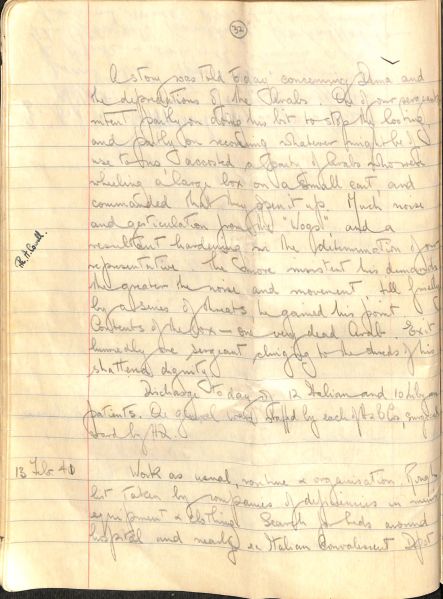 32
A story was told today concerning Derna and
the depredations of the Arabs. One of our sergeants
intent partly on doing his bit to stop the looting
and partly on securing whatever might be of
use to us accosted a party of Arabs who were
wheeling a large box on a small cart and
commanded that they open it up. Much noise
and gesticulation from the "Wogs" and a
resultant hardening in the determination of our
representative. The more insistent his demands
the greater the noise and movement, till finally
by a series of threats he gained his point.
Contents of the box — one very dead Arab. Exit
hurriedly one sergeant clinging to the shreds of his
shattered dignity.
Discharge today of 12 Italian and 10 Libyan
patients. One general ward staffed by each of
by HQ.
13 Feb 41 Work as usual, routine & organisation.
taken by companies of deficiencies in
equipment & clothing. Search for beds around
hospital and nearby ex Italian Convalescent Depot